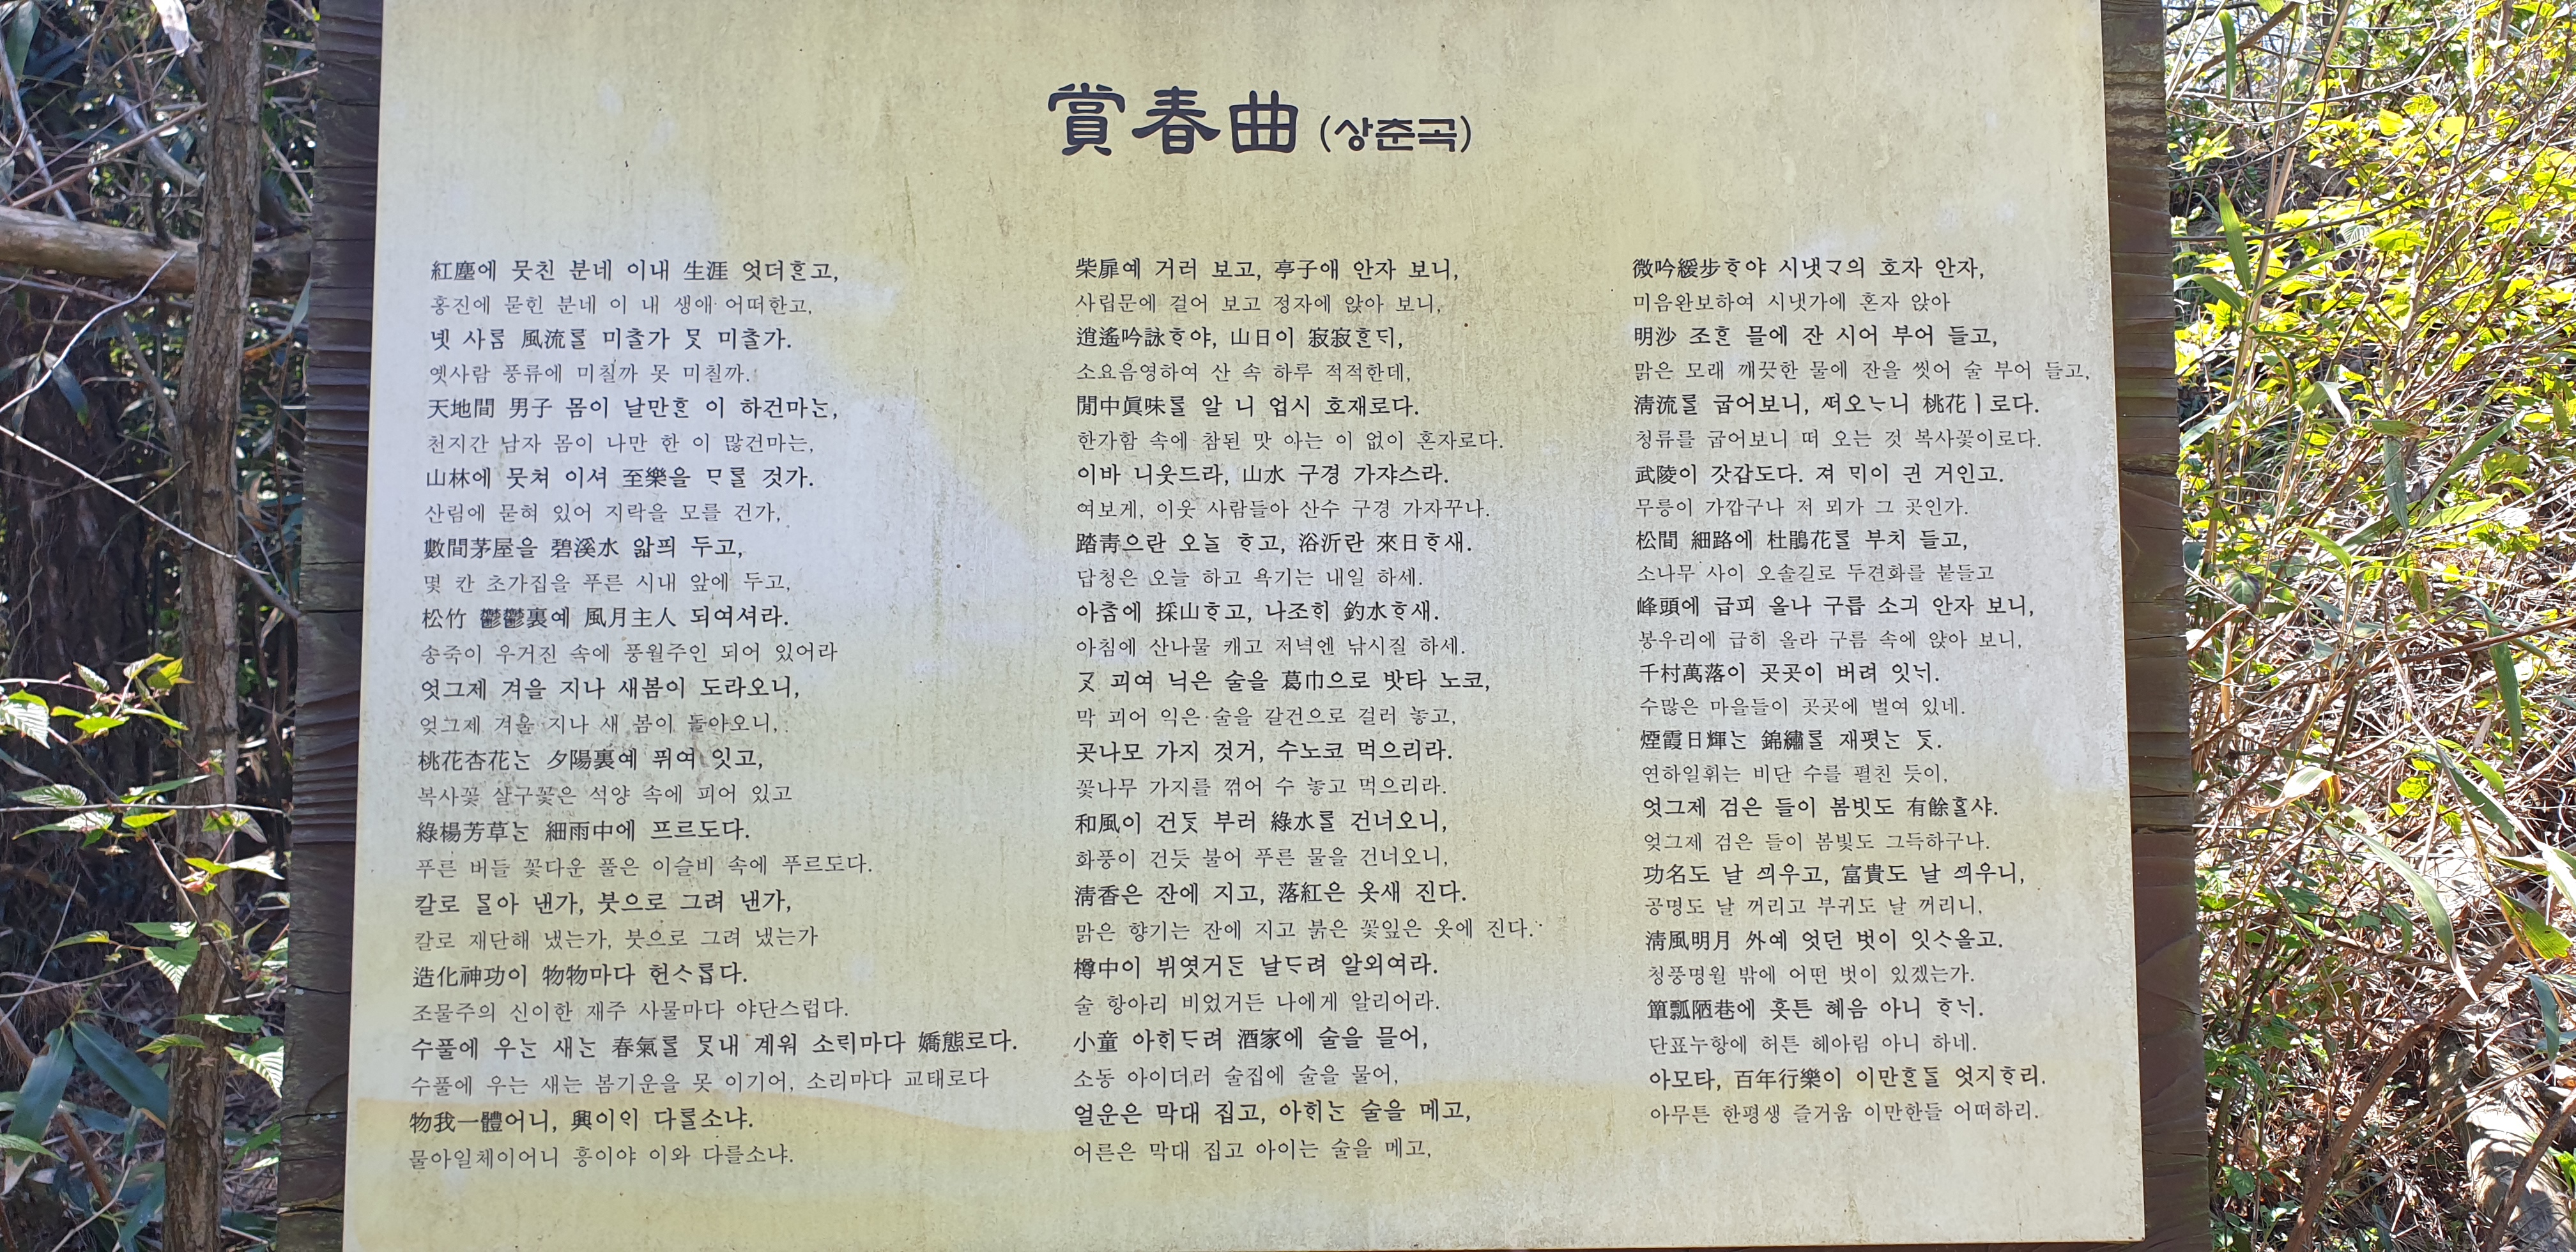 賞春曲 (상춘곡)
紅塵에 뭇친 분네 이내 生涯 엇더ᄒᆞᆫ고,
홍진에 묻힌 분네 이 내 생애 어떠한고,
녯 사ᄅᆞᆷ 風流ᄅᆞᆯ 미ᄎᆞᆯ가 ᄆᆞᆺ 미ᄎᆞᆯ가.
옛사람 풍류에 미칠까 못 미칠까.
天地間 男子 몸이 날만ᄒᆞᆫ 이 하건마ᄂᆞᆫ,
천지간 남자 몸이 나만 한 이 많건마는,
山林에 뭇쳐 이셔 至樂을 ᄆᆞᄅᆞᆯ 것가.
산림에 묻혀 있어 지락을 모를 건가,
數間茅屋을 碧溪水 앏픠 두고,
몇 칸 초가집을 푸른 시내 앞에 두고,
松竹 鬱鬱裏예 風月主人 되여셔라.
송죽이 우거진 속에 풍월주인 되어 있어라
엇그제 겨을 지나 새봄이 도라오니,
엊그제 겨울 지나 새 봄이 돌아오니,
桃花杏花ᄂᆞᆫ 夕陽裏예 퓌여 잇고,
복사꽃 살구꽃은 석양 속에 피어 있고
綠楊芳草ᄂᆞᆫ 細雨中에 프르도다.
푸른 버들 꽃다운 풀은 이슬비 속에 푸르도다.
칼로 ᄆᆞᆯ아 낸가, 붓으로 그려 낸가,
칼로 재단해 냈는가, 붓으로 그려 냈는가
造化神功이 物物마다 헌ᄉᆞ롭다.
조물주의 신이한 재주 사물마다 야단스럽다.
수풀에 우ᄂᆞᆫ 새ᄂᆞᆫ 春氣ᄅᆞᆯ ᄆᆞᆺ내 계워 소ᄅᆡ마다 嬌態로다.
수풀에 우는 새는 봄기운을 못 이기어, 소리마다 교태로다
物我一體어니, 興이ᄋᆡ 다ᄅᆞᆯ소냐.
물아일체이어니 흥이야 이와 다를소냐.
柴扉예 거러 보고, 亭子애 안자 보니,
사립문에 걸어 보고 정자에 앉아 보니,
逍遙吟詠ᄒᆞ야, 山日이 寂寂ᄒᆞᆫᄃᆡ,
소요음영하여 산 속 하루 적적한데,
閒中眞味ᄅᆞᆯ 알 니 업시 호재로다.
한가함 속에 참된 맛 아는 이 없이 혼자로다.
이바 니웃드라, 山水 구경 가쟈스라.
여보게, 이웃 사람들아 산수 구경 가자꾸나.
踏靑으란 오ᄂᆞᆯ ᄒᆞ고, 浴沂란 來日ᄒᆞ새.
답청은 오늘 하고 욕기는 내일 하세.
아ᄎᆞᆷ에 採山ᄒᆞ고, 나조ᄒᆡ 釣水ᄒᆞ새.
아침에 산나물 캐고 저녁엔 낚시질 하세.
ᄀᆞᆺ 괴여 닉은 술을 葛巾으로 밧타 노코,
막 괴어 익은 술을 갈건으로 걸러 놓고,
곳나모 가지 것거, 수노코 먹으리라.
꽃나무 가지를 꺾어 수 놓고 먹으리라.
和風이 건ᄃᆞᆺ 부러 綠水ᄅᆞᆯ 건너오니,
화풍이 건듯 불어 푸른 물을 건너오니,
淸香은 잔에 지고, 落紅은 옷새 진다.
맑은 향기는 잔에 지고 붉은 꽃잎은 옷에 진다.
樽中이 뷔엿거ᄃᆞᆫ 날ᄃᆞ려 알외여라.
술 항아리 비었거든 나에게 알리어라.
小童 아ᄒᆡᄃᆞ려 酒家에 술을 믈어,
소동 아이더러 술집에 술을 물어,
얼운은 막대 집고, 아ᄒᆡᄂᆞᆫ 술을 메고,
어른은 막대 집고 아이는 술을 메고,
微吟緩步ᄒᆞ야 시냇ᄀᆞ의 호자 안자,
미음완보하여 시냇가에 혼자 앉아
明沙 조ᄒᆞᆫ 믈에 잔 시어 부어 들고,
맑은 모래 깨끗한 물에 잔을 씻어 술 부어 들고,
淸流ᄅᆞᆯ 굽어보니, ᄯᅥ오ᄂᆞ니 桃花ㅣ로다.
청류를 굽어보니 떠 오는 것 복사꽃이로다.
武陵이 갓갑도다. 져 ᄆᆡ이 귄 거인고.
무릉이 가깝구나 저 뫼가 그 곳인가.
松間 細路에 杜鵑花ᄅᆞᆯ 부치 들고,
소나무 사이 오솔길로 두견화를 붙들고
峰頭에 급피 올나 구릅 소긔 안자 보니,
봉우리에 급히 올라 구름 속에 앉아 보니,
千村萬落이 곳곳이 버려 잇ᄂᆡ.
수많은 마을들이 곳곳에 벌여 있네.
煙霞日輝ᄂᆞᆫ 錦繡ᄅᆞᆯ 재폇ᄂᆞᆫ ᄃᆞᆺ.
연하일휘는 비단 수를 펼친 듯이,
엇그제 검은 들이 봄빗도 有餘ᄒᆞᆯ샤.
엊그제 검은 들이 봄빛도 그득하구나.
功名도 날 ᄭᅴ우고, 富貴도 날 ᄭᅴ우니,
공명도 날 꺼리고 부귀도 날 꺼리니,
淸風明月 外예 엇던 벗이 잇ᄉᆞ올고.
청풍명월 밖에 어떤 벗이 있겠는가.
簞瓢陋巷에 흣튼 혜음 아니 ᄒᆞᄂᆡ.
단표누항에 허튼 헤아림 아니 하네.
아모타, 百年行樂이 이만ᄒᆞᆫᄃᆞᆯ 엇지ᄒᆞ리.
아무튼 한평생 즐거움 이만한들 어떠하리.